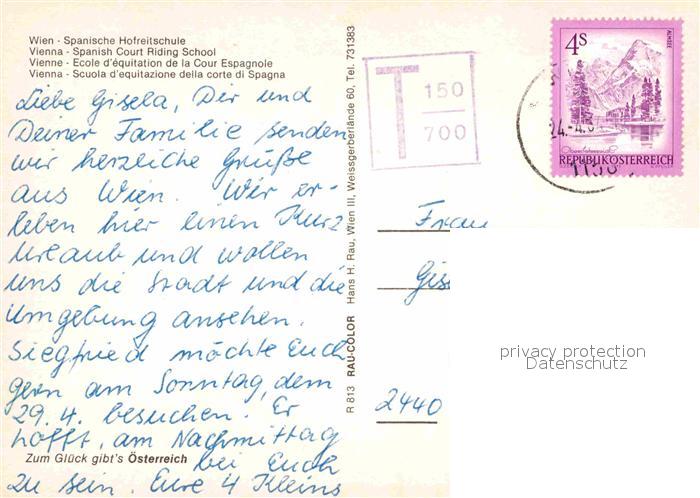 Wien - Spanische Hofreitschule
Vienna - Spanish Court Riding School
Vienne - Ecole d'équitation de la Cour Espagnole
Vienna - Scuola d'equitazione della corte di Spagna
Liebe Gisela, Dir und
Deiner Familie senden
wir herzliche Grüße
aus Wien. Wir er-
leben hier einen Kurz
urlaub und wollen
uns die Stadt und die
Umgebung ansehen.
Siegfried möchte Euch
gern am Sonntag, dem
29.4. besuchen. Er
hofft, am Nachmittag
Zum Glück gibt's Österreich
bei Euch
zu sein. Eure 4 Kleins
R 813 RAU-COLOR Hans H. Rau, Wien III, Weissgerberlände 60, Tel. 731383
T 150
700
4S
ALMSEE
Oberösterreich
REPUBLIK ÖSTERREICH
24.-4.
1150
Frau
Gis
2440
privacy protection
Datenschutz